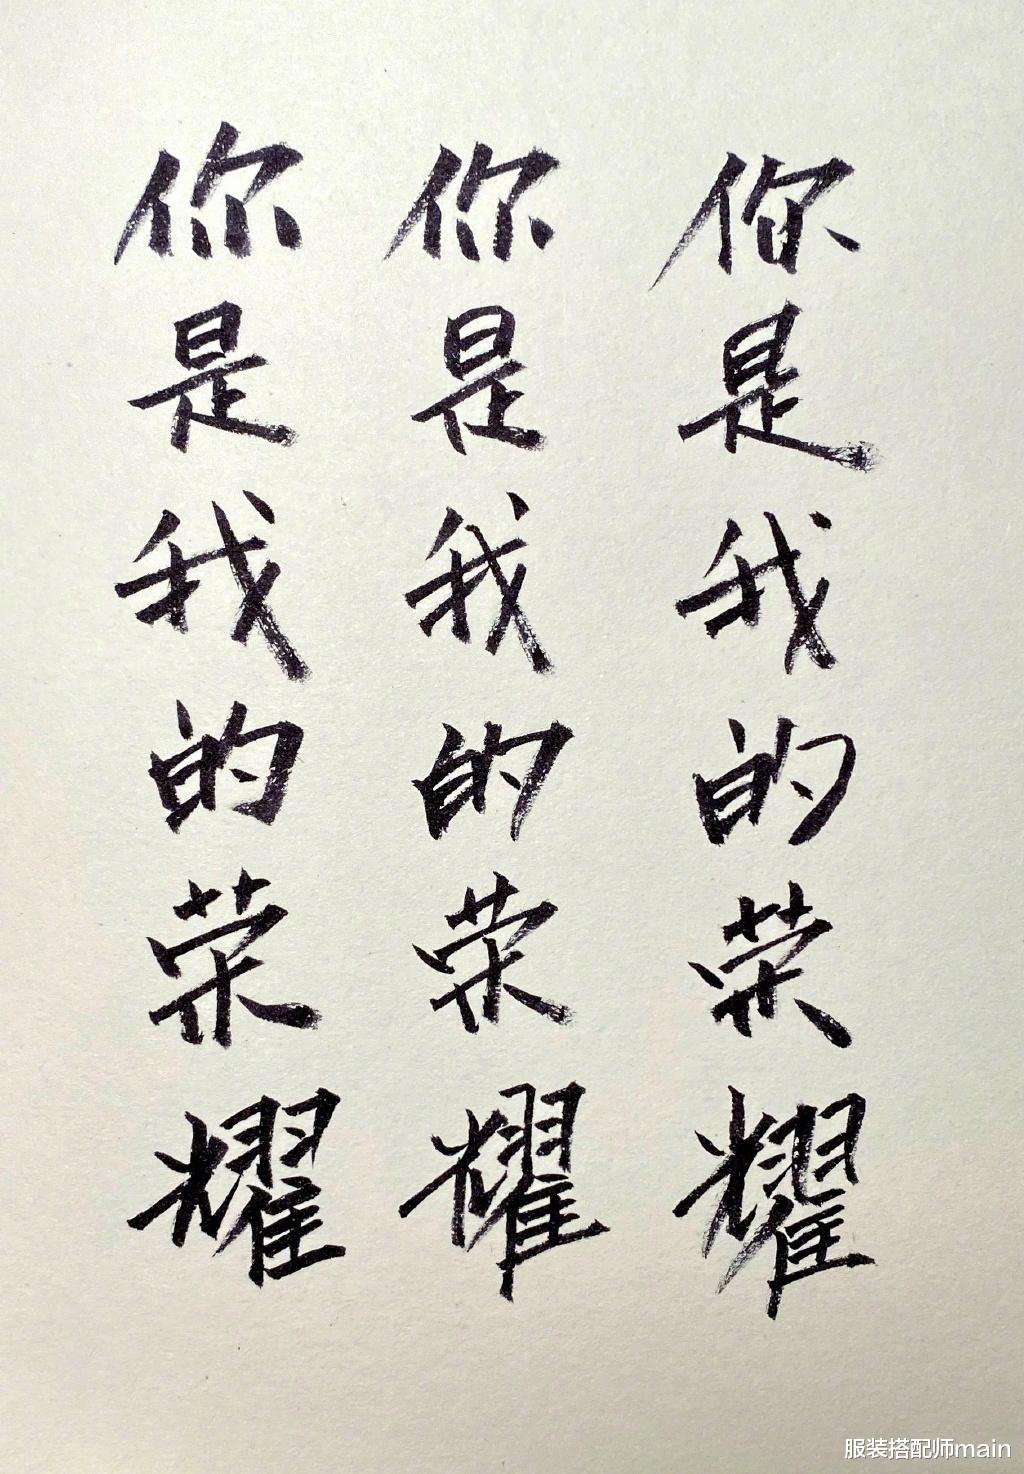 你是我的荣耀
你是我的荣耀
你是我的荣耀
服装搭配师main